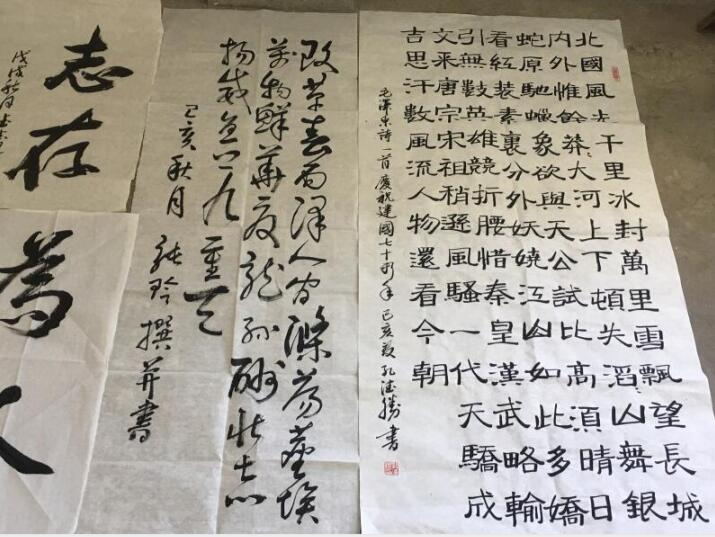 北國風光千里冰封萬里雪飄望長城
內外惟餘莽々大河上下頓失滔々山舞銀
蛇原馳蠟象欲與天公試比高須晴日
看紅裝素裹分外妖嬈江山如此多嬌
引無數英雄競折腰惜秦皇漢武略輸
文采唐宗宋祖稍遜風騷一代天驕成
吉思汗數風流人物還看今朝
毛澤東詩一首慶祝建國七十周年己亥夏孔德勝書
改革春雨澤人間滌蕩塵埃
萬物鮮華夏龍孫酬壯志
揚威直上九重天
己亥秋月 玲撰并書
志存
戊戌秋月
為人